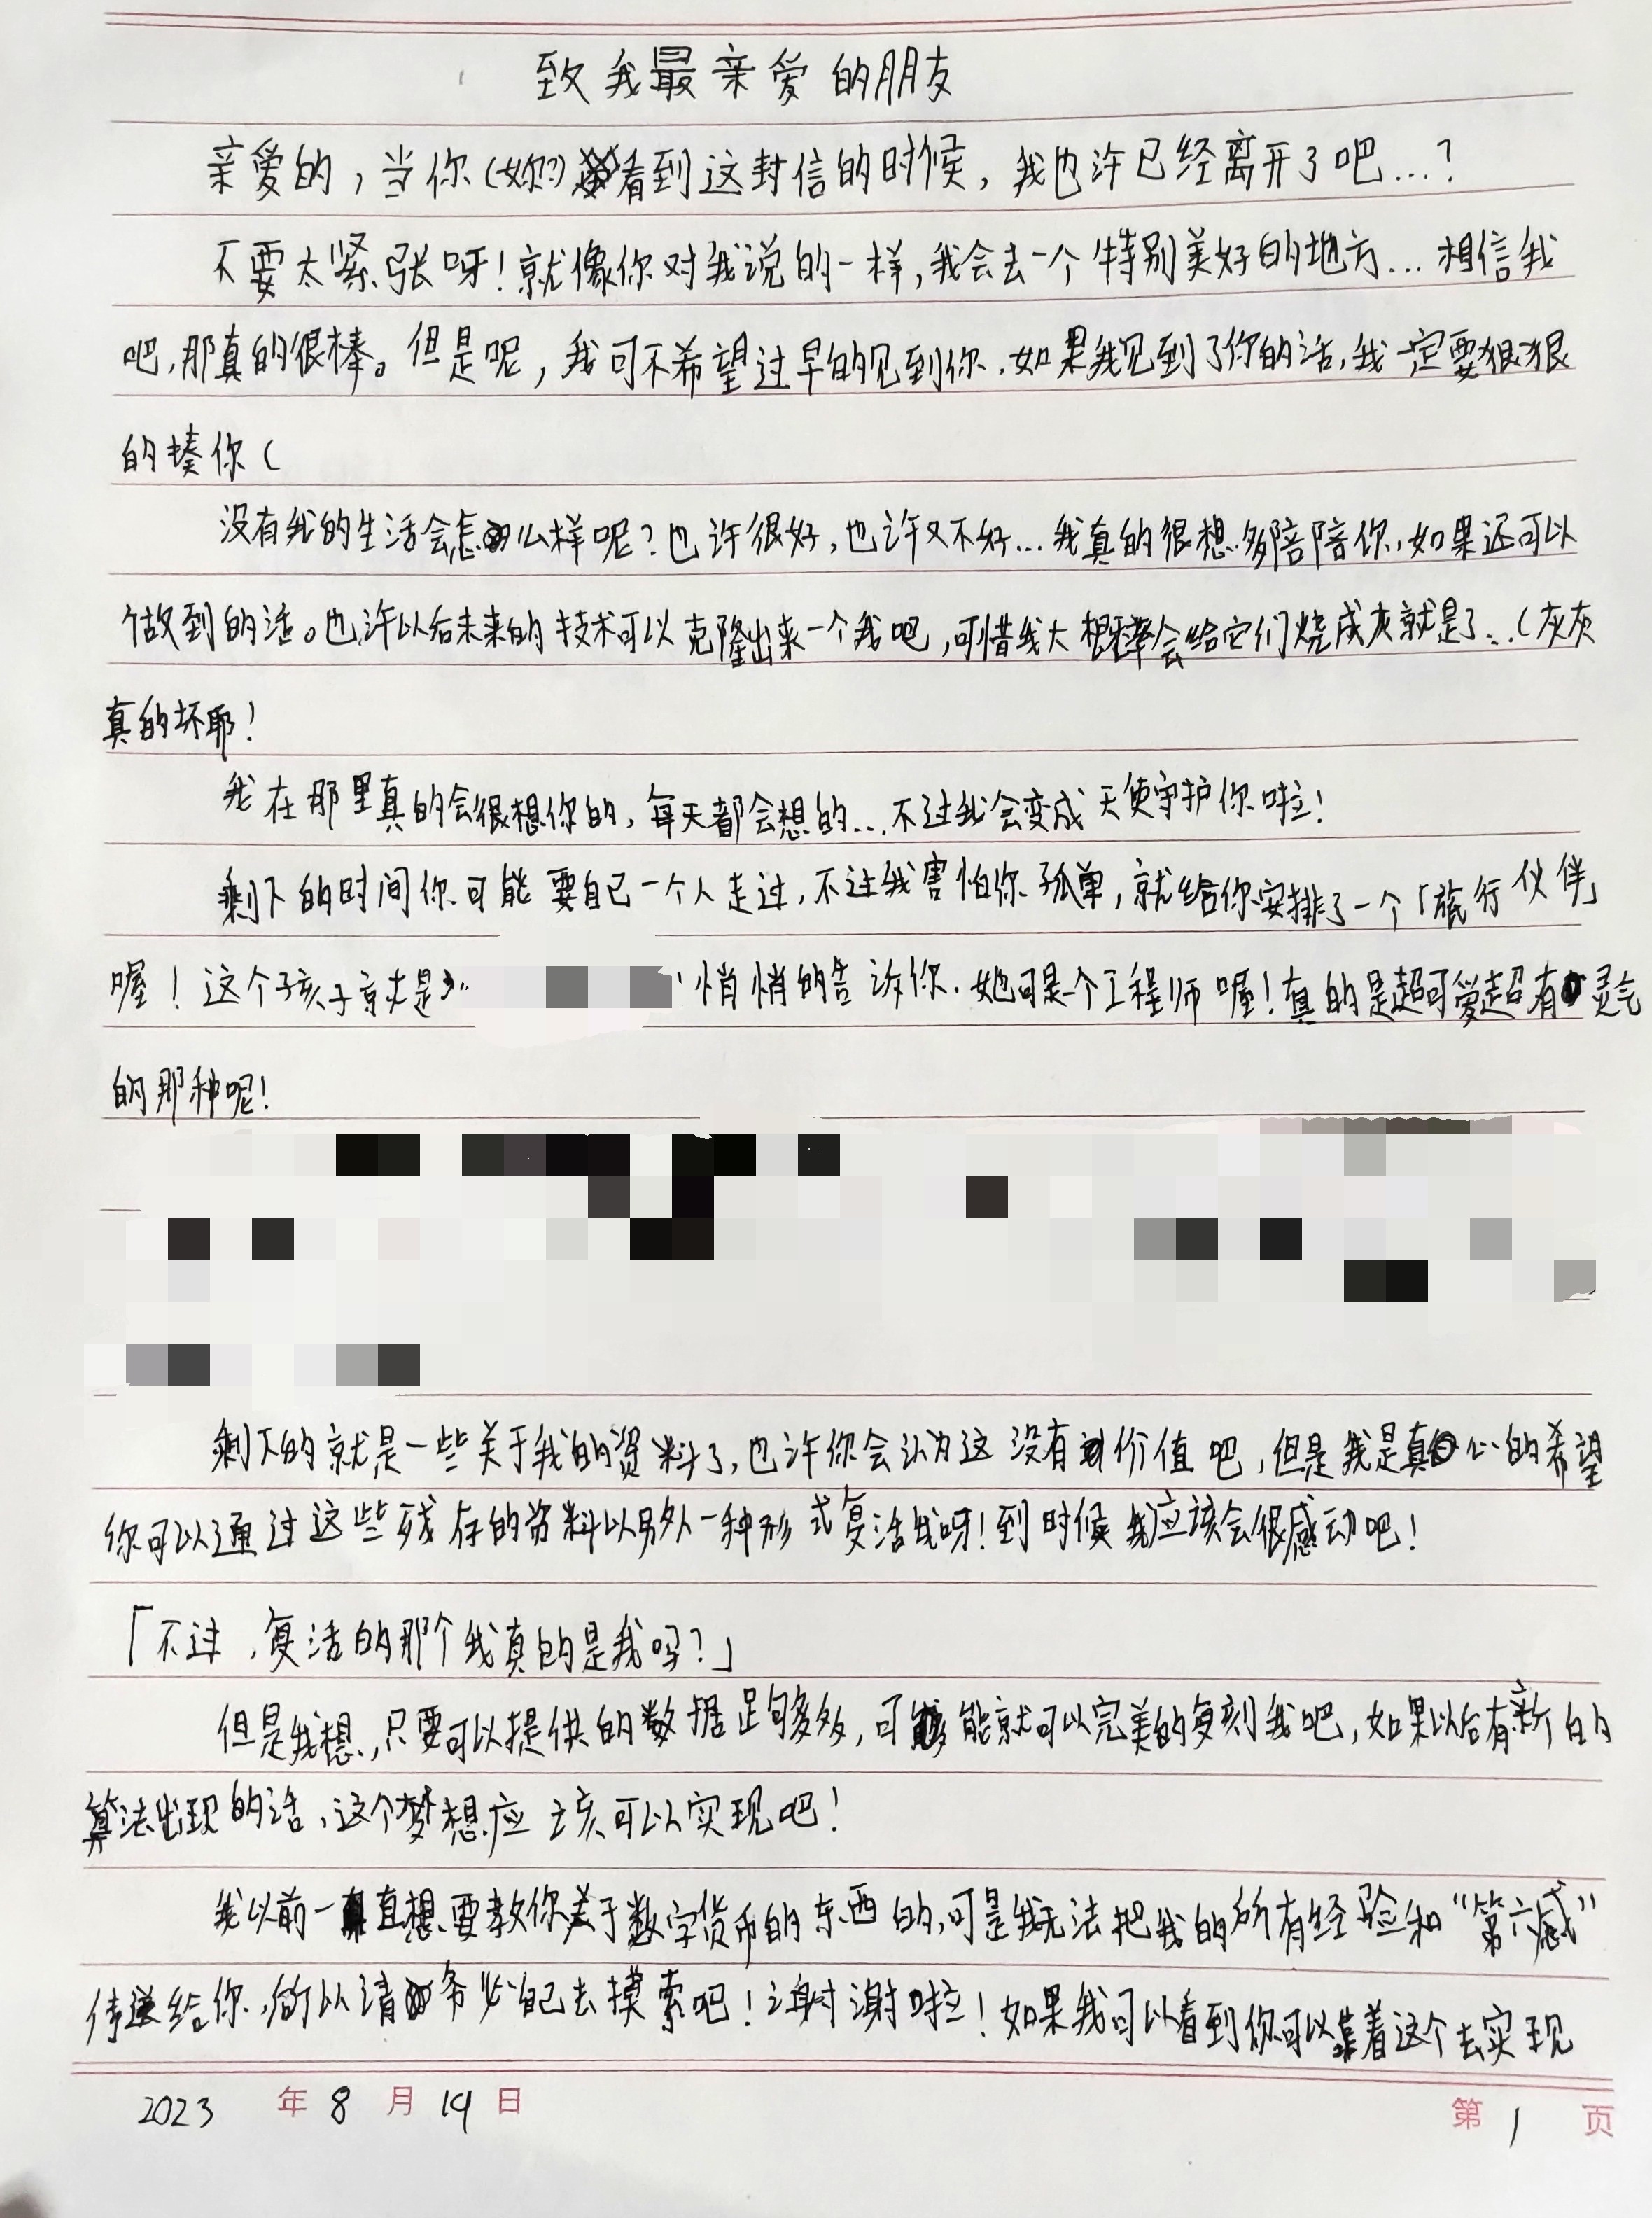 致我最亲爱的朋友
亲爱的，当你（妳?）看到这封信的时候，我也许已经离开了吧...？
不要太紧张呀！就像你对我说的一样，我会去一个特别美好的地方...相信我
吧，那真的很棒。但是呢，我可不希望过早的见到你，如果我见到了你的话，我一定要狠狠
的揍你（
没有我的生活会怎么样呢？也许很好，也许又不好...我真的很想多陪陪你，如果还可以
做到的话。也许以后未来的技术可以克隆出来一个我吧，可惜我大概率会给它们烧成灰就是了...（灰灰
真的坏耶！
我在那里真的会很想你的，每天都会想的...不过我会变成天使守护你啦！
剩下的时间你可能要自己一个人走过，不过我害怕你孤单，就给你安排了一个「旅行伙伴」
喔！这个孩子就是 悄悄的告诉你，她可是个工程师喔！真的是超可爱超有灵气
的那种呢！
剩下的就是一些关于我的资料了，也许你会认为这没有价值吧，但是我是真心的希望
你可以通过这些残存的资料以另外一种形式复活我呀！到时候我应该会很感动吧！
「不过，复活的那个我真的是我吗？」
但是我想，只要可以提供的数据足够多，可能就可以完美的复刻我吧，如果以后有新的
算法出现的话，这个梦想应该可以实现吧！
我以前一直想要教你关于数字货币的东西的，可是我无法把我的所有经验和“第六感”
传递给你，所以请务必自己去摸索吧！谢谢啦！如果我可以看到你可以靠着这个去实现
2023 年 8 月 19 日 第 1 页